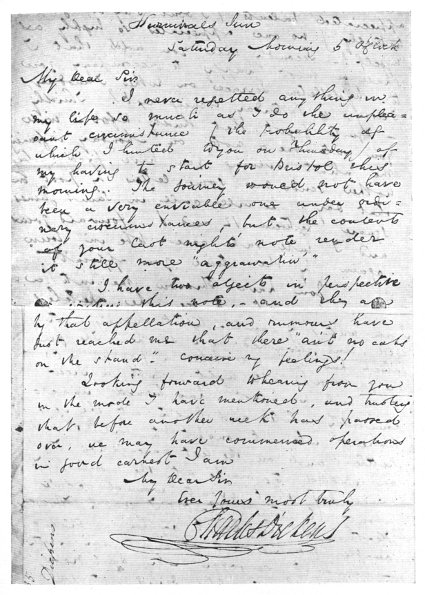 Furnivals Inn
Saturday Morning 5 O'Clock
My Dear Sir
I never regretted any thing in
my life so much as I do the unpleas-
ant circumstance (the probability of
which I hinted to you on Thursday) of
my having to start for Bristol this
morning. The journey would not have
been a very enviable one under ordi-
nary circumstances, but the contents
of your last night's note render
it still more "aggrawatin".
I have two objects in perspective
this note, - and they
by that appellation, and rumours have
just reached me that there "an't no cabs
on the stand". conceive my feelings!
Looking forward to hearing from you
in the mode I have mentioned, and trusting
that before another week has passed
over, we may have commenced operations
in good earnest I am
My Dear Sir
Ever Yours most truly
Charles Dickens
Dickens